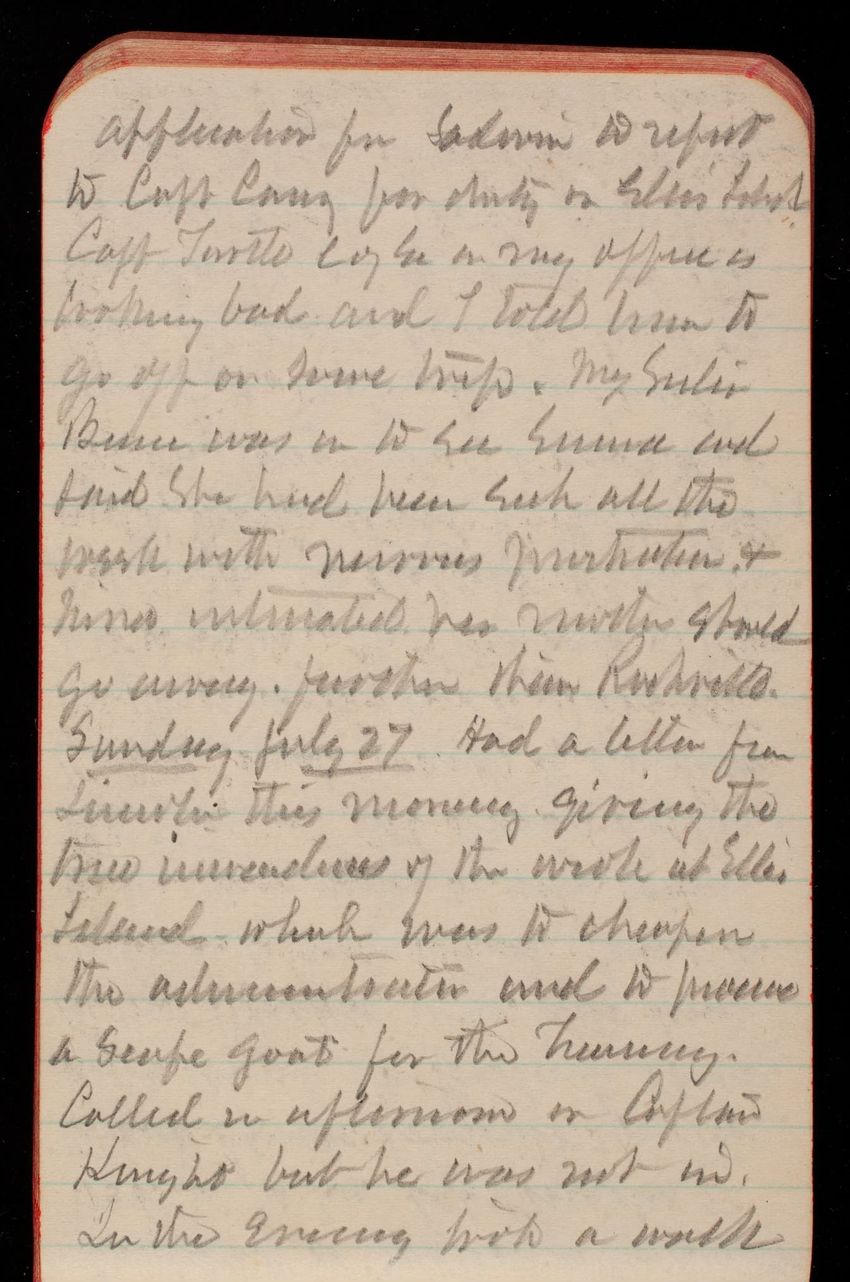 application for to report
to Capt Casey for duty on Ellis Island
Capt Turtle in my office is
looking bad and I told him to
go off on some trip. My Sister
Bessie was in to see Emma and
said She had been sick all the
week with nervous prostration &
intimated her mother should
go away. further than Rockville.
Sunday July 27 Had a letter from
Lincoln this morning giving the
true inwardness of the work at Ellis
Island which was to cheapen
the administration and to procure
a Scape goat for the Treasury.
Called in afternoon on Captain
Knight but he was not in.
In the Evening took a walk